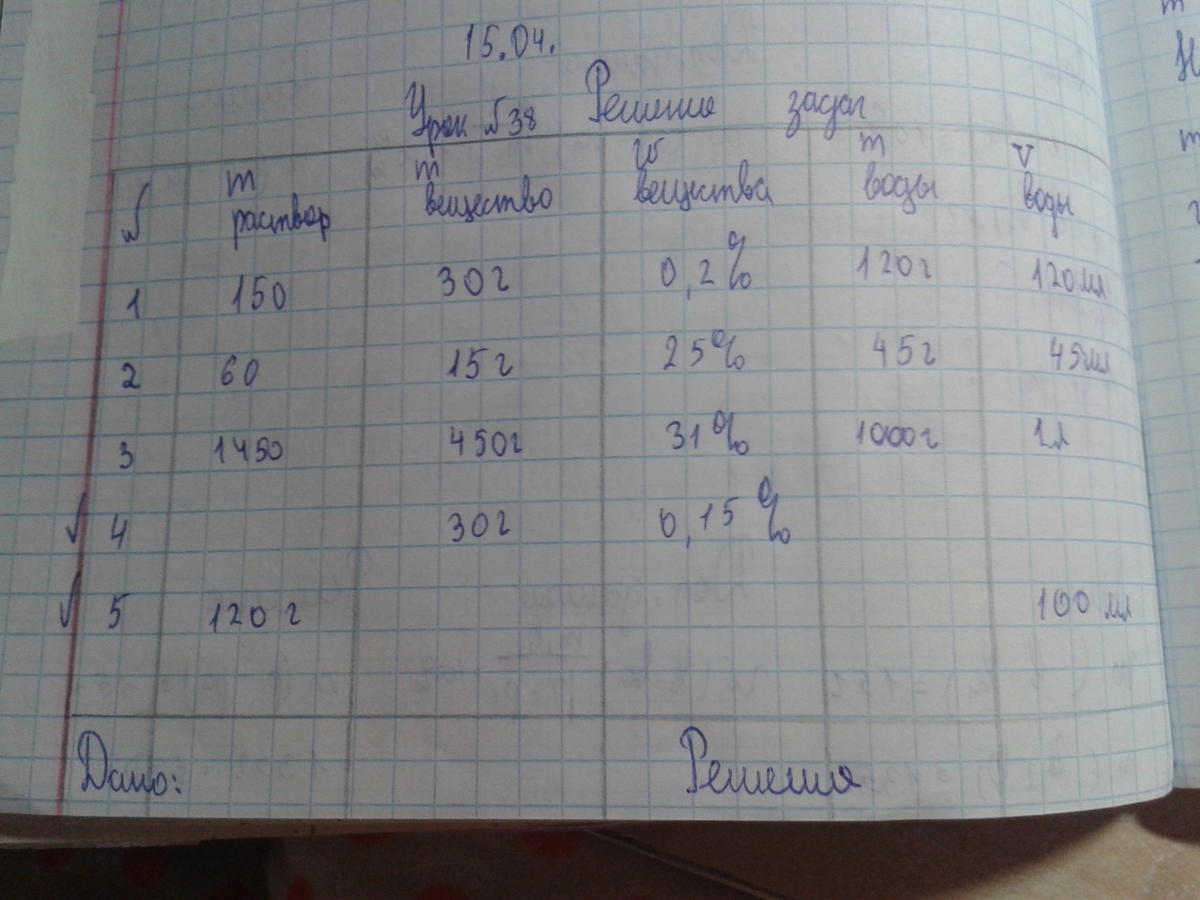 15.04.
Урок №38 Решения задач
№ m раствор m вещество w вещества m воды V воды
1 150 30г 0,2% 120г 120мл
2 60 15г 25% 45г 45мл
3 1450 450г 31% 1000г 1л
√ 4 30г 0,15%
√ 5 120 г 100 мл
Дано: Решения